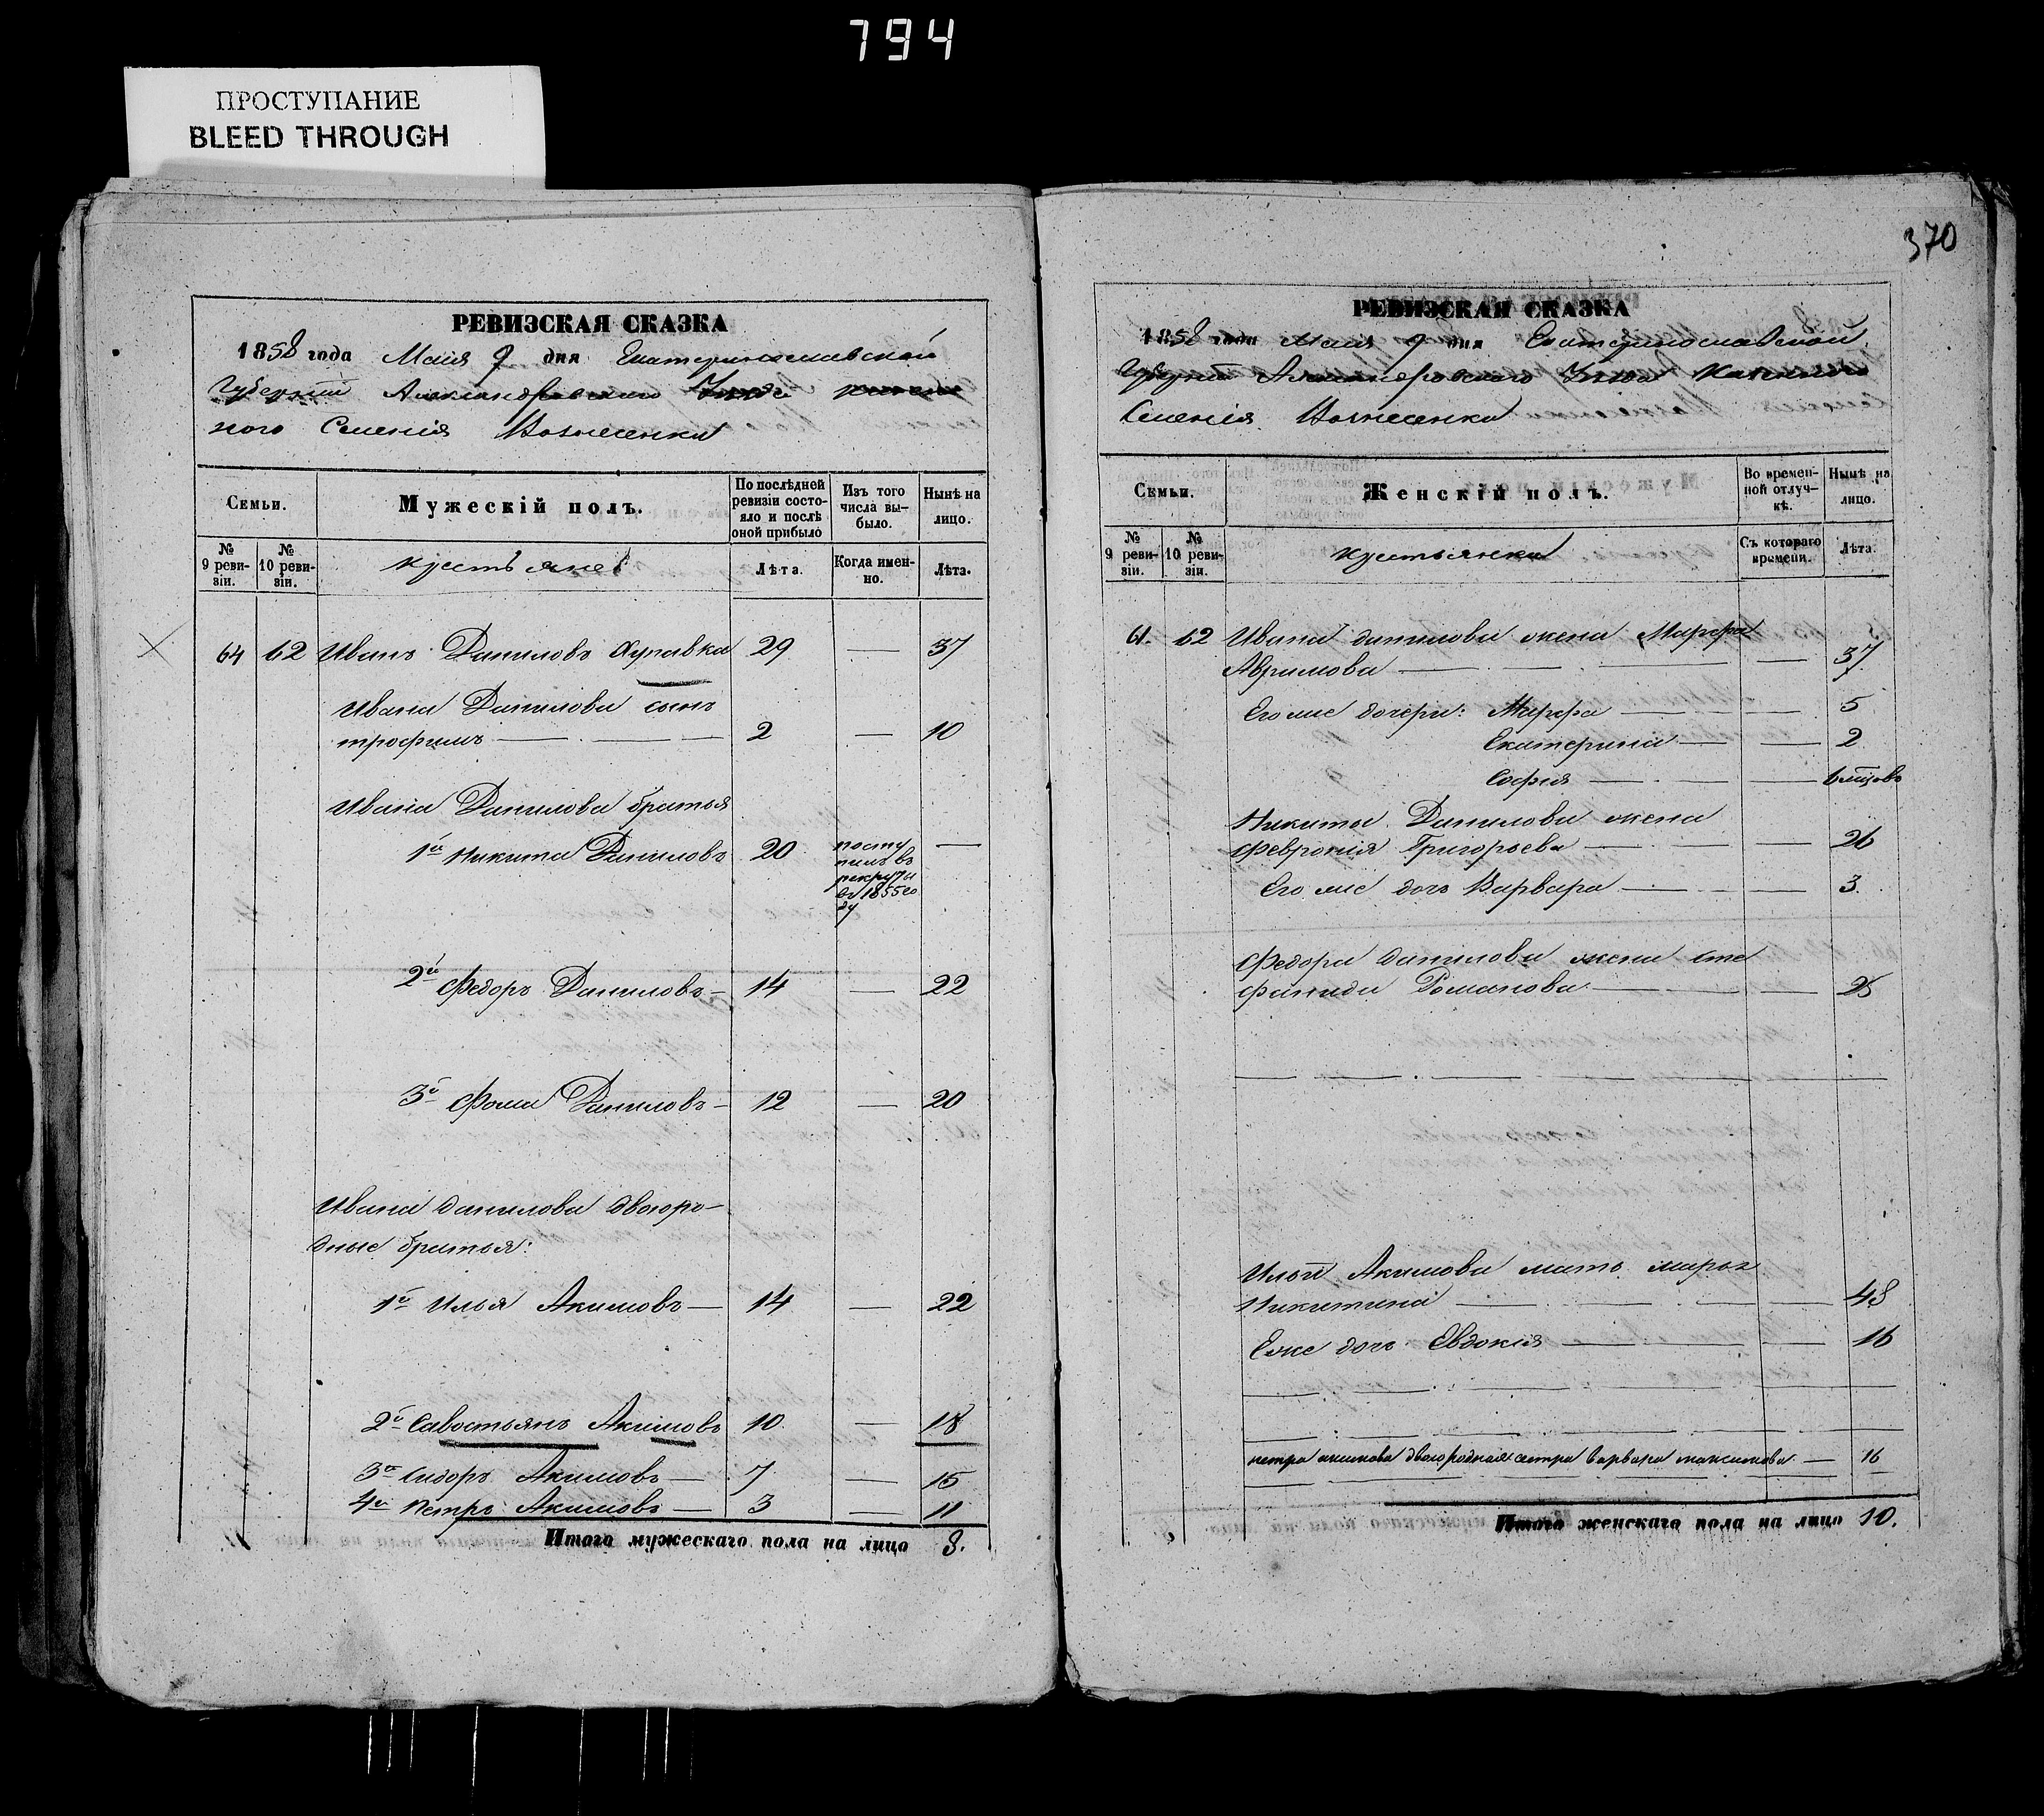 794
ПРОСТУПАНИЕ
BLEED THROUGH
370
РЕВИЗСКАЯ СКАЗКА
1858 года Маія 9 дня Екатеринославской
Губерніи Александровского Уезда казен
ного Селенія Вознесенки
Семьи.
Мужескій полъ.
По послѣдней ревизіи состояло и послѣ оной прибыло
Изъ того числа выбыло.
Нынѣ на лицо.
№ 9 ревизіи.
№ 10 ревизіи.
Лѣта.
Когда именно.
Лѣта.
64 62 Иванъ Даниловъ 29 — 37
Ивана Данилова сынъ
трофимъ — 2 — 10
Ивана Данилова братья
1й Никита Даниловъ 20 посту
пилъ въ
рекруты
въ 1855 го
ду —
2й Федоръ Даниловъ — 14 — 22
3й Фома Даниловъ — 12 — 20
Ивана данилова двоюро-
дные братья:
1й Илья Акимовъ — 14 — 22
2й Савостьянъ Акимовъ 10 — 18
3й Сидоръ Акимовъ — 7 — 15
4й Петръ Акимовъ — 3 — 11
Итого мужескаго пола на лицо 8.
РЕВИЗСКАЯ СКАЗКА
1858 года Маія 9 дня Екатеринославской
Губерніи Александровского Уезда Казенного
Селенія Вознесенки
Семьи.
Женскій полъ.
Во временной отлучкѣ.
Нынѣ на лицо.
№ 9 ревизіи.
№ 10 ревизіи.
Съ котораго времени.
Лѣта.
62 Ивана данилова жена Марфа
Абрамова — — 37
Его же дочери: Марфа — — 5
Екатерина — — 2
Софія — — 6 мцовъ
Никиты Данилова жена
Феврония Григорьева — — 26
Его же дочь Варвара — — 3.
Федора данилова жена Сте
фанида Романова — — 25
Ильи Акимова мать марья
Никитина — — 48
Ее же дочь Евдокия — — 16
петра акимова двоюродная сестра варвара максимова — 16
Итого женскаго пола на лицо 10.